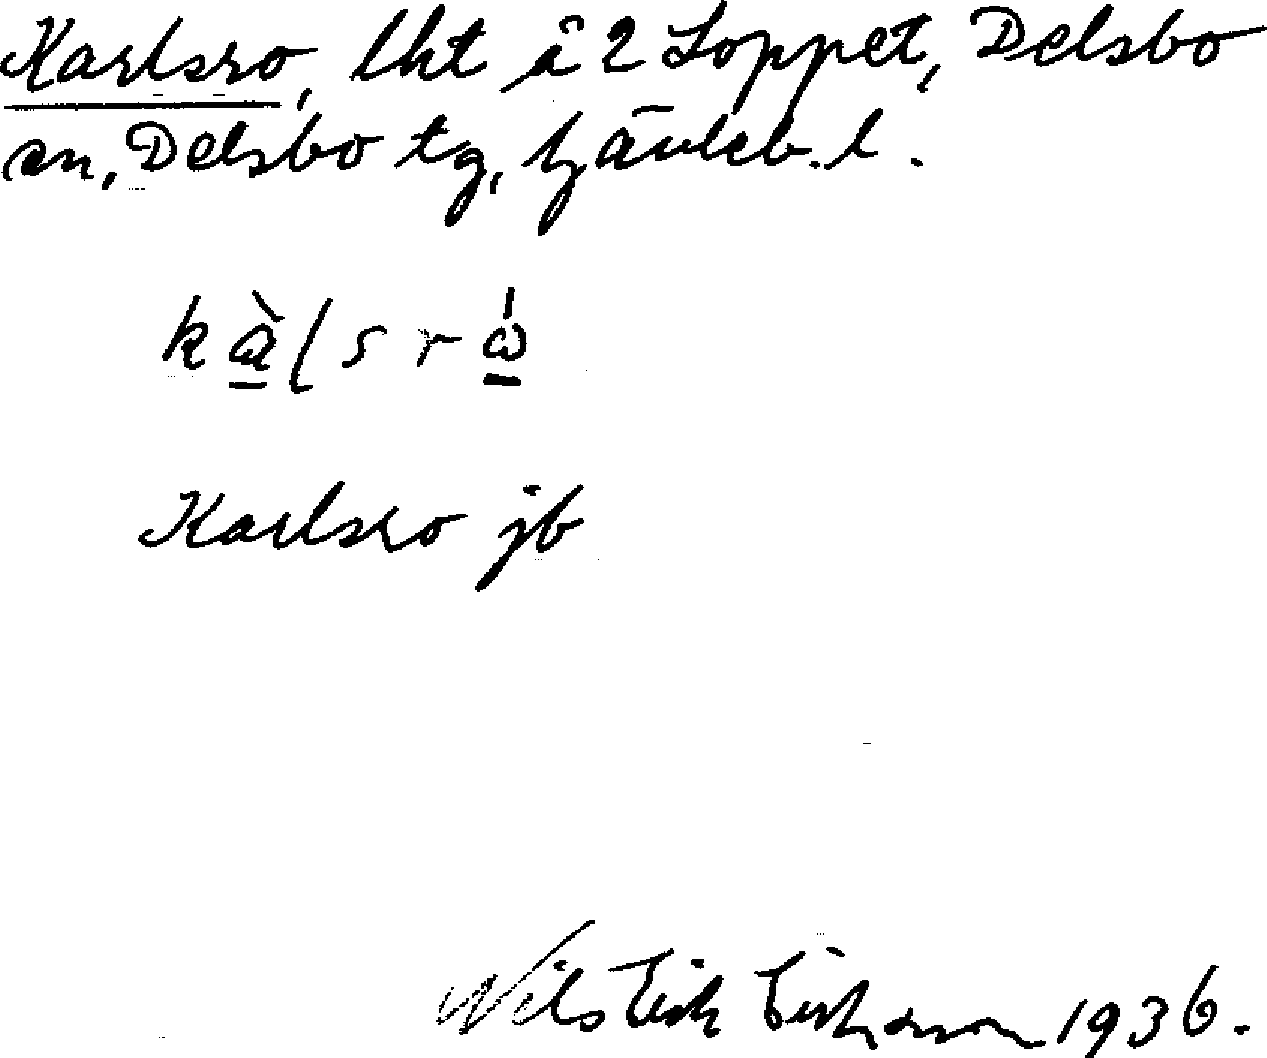 Karlsro, lht å 2 Loppet, Delsbo
sn, Delsbo tg, Gävleb. l.
kàlsrὼ
Karlsro jb
Nils Erik Eriksson 1936.